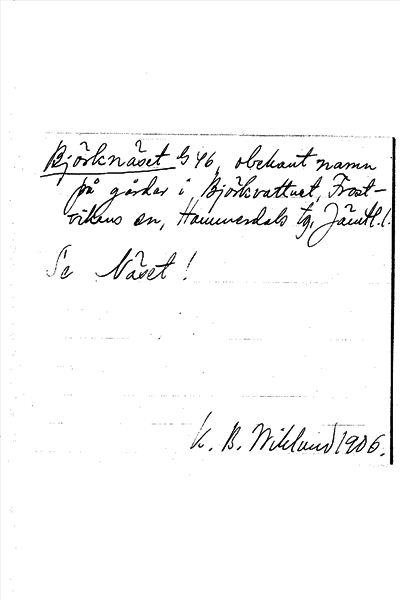 Björknäset G 46, obekant namn
på gårdar i Björkvattnet, Frost-
vikens sn, Hammerdals tg. Jämtl. l.
Se Näset!
K. B. Wiklund 1906.